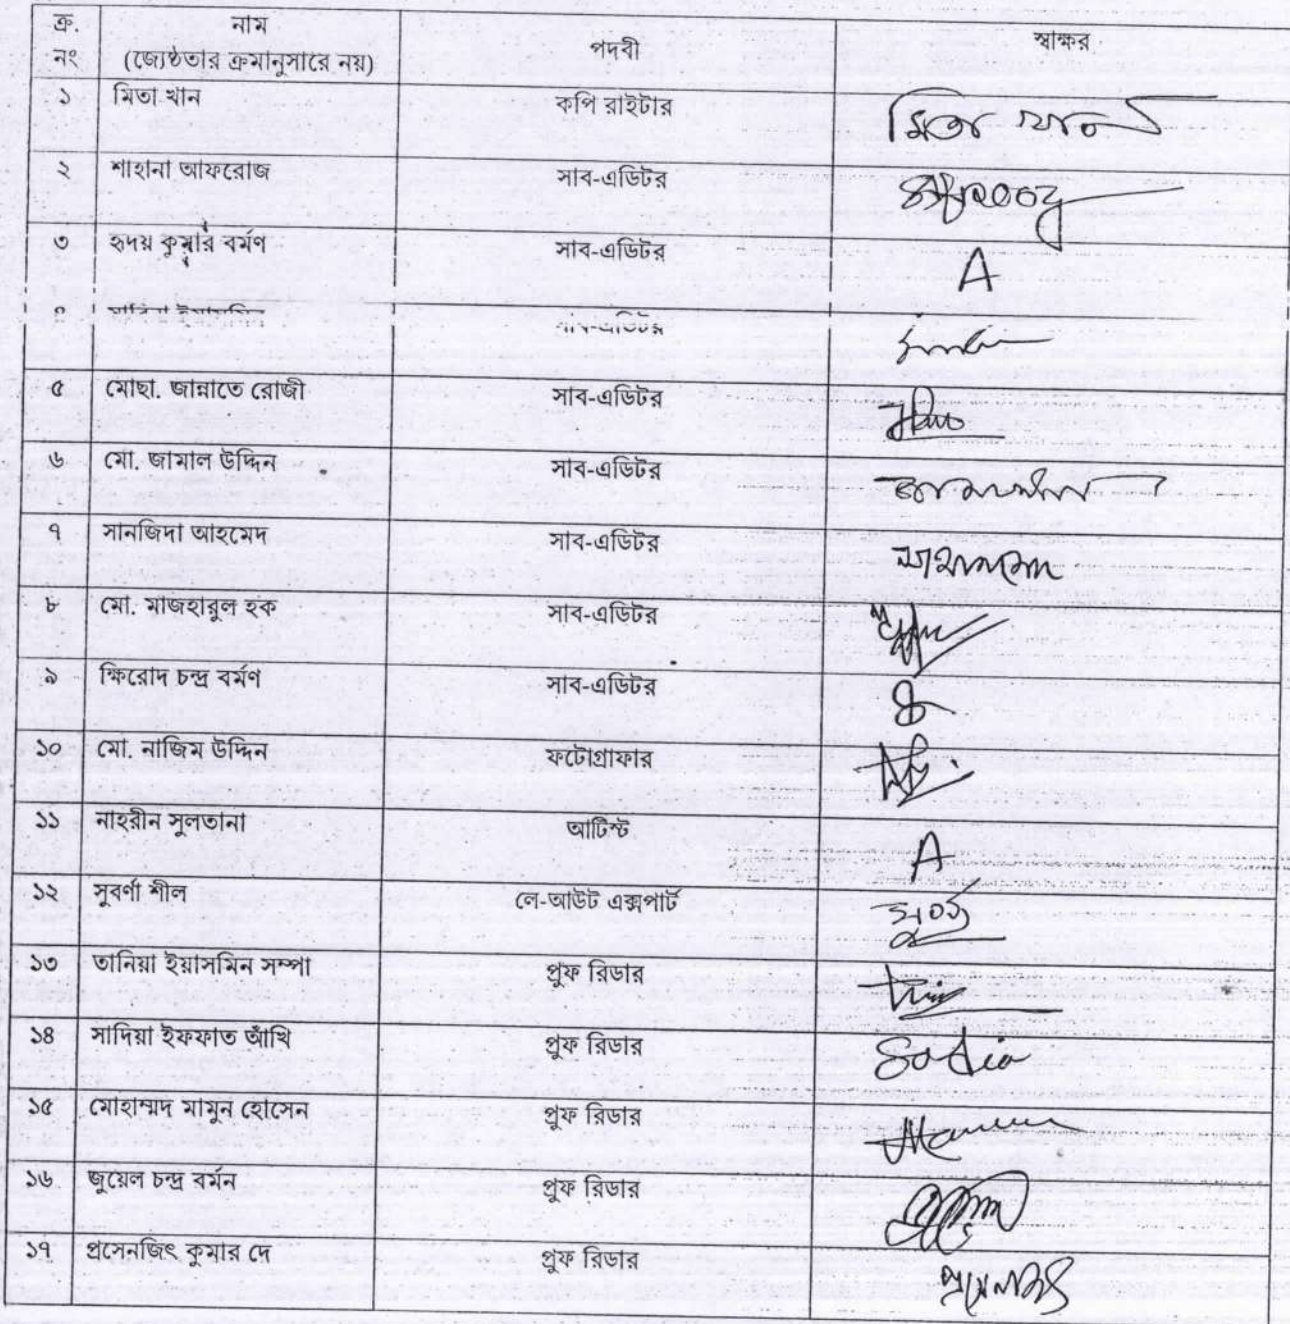 ক্র. নাম পদবী স্বাক্ষর
নং (জ্যেষ্ঠতার ক্রমানুসারে নয়)
১ মিতা খান কপি রাইটার মিতা খান
২ শাহানা আফরোজ সাব-এডিটর
৩ হৃদয় কুমার বর্মণ সাব-এডিটর A
সাব-এডিটর
৫ মোছা. জান্নাতে রোজী সাব-এডিটর
৬ মো. জামাল উদ্দিন সাব-এডিটর
৭ সানজিদা আহমেদ সাব-এডিটর
৮ মো. মাজহারুল হক সাব-এডিটর
৯ ক্ষিরোদ চন্দ্র বর্মণ সাব-এডিটর
১০ মো. নাজিম উদ্দিন ফটোগ্রাফার
১১ নাহরীন সুলতানা আর্টিস্ট A
১২ সুবর্ণা শীল লে-আউট এক্সপার্ট
১৩ তানিয়া ইয়াসমিন সম্পা প্রুফ রিডার
১৪ সাদিয়া ইফফাত আঁখি প্রুফ রিডার Sadia
১৫ মোহাম্মদ মামুন হোসেন প্রুফ রিডার
১৬ জুয়েল চন্দ্র বর্মন প্রুফ রিডার
১৭ প্রসেনজিৎ কুমার দে প্রুফ রিডার